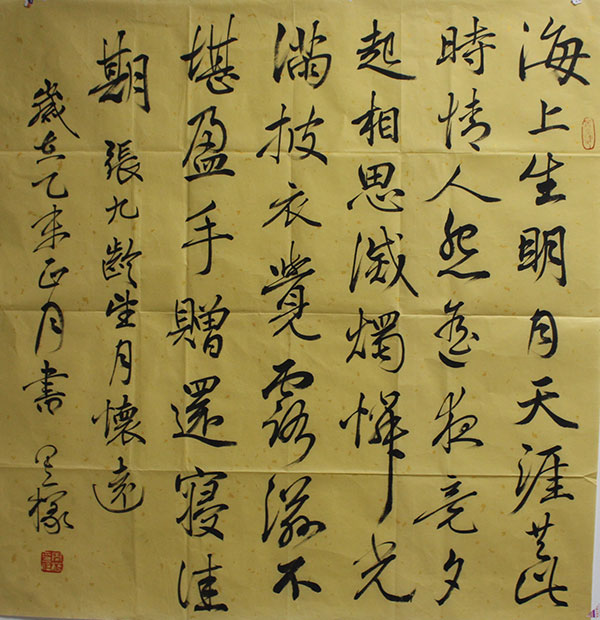 海上生明月天涯共此
時情人怨遙夜竟夕
起相思滅燭憐光
滿披衣覺露滋不
堪盈手贈還寢佳
期 張九齡望月懷遠
歲在乙未正月書